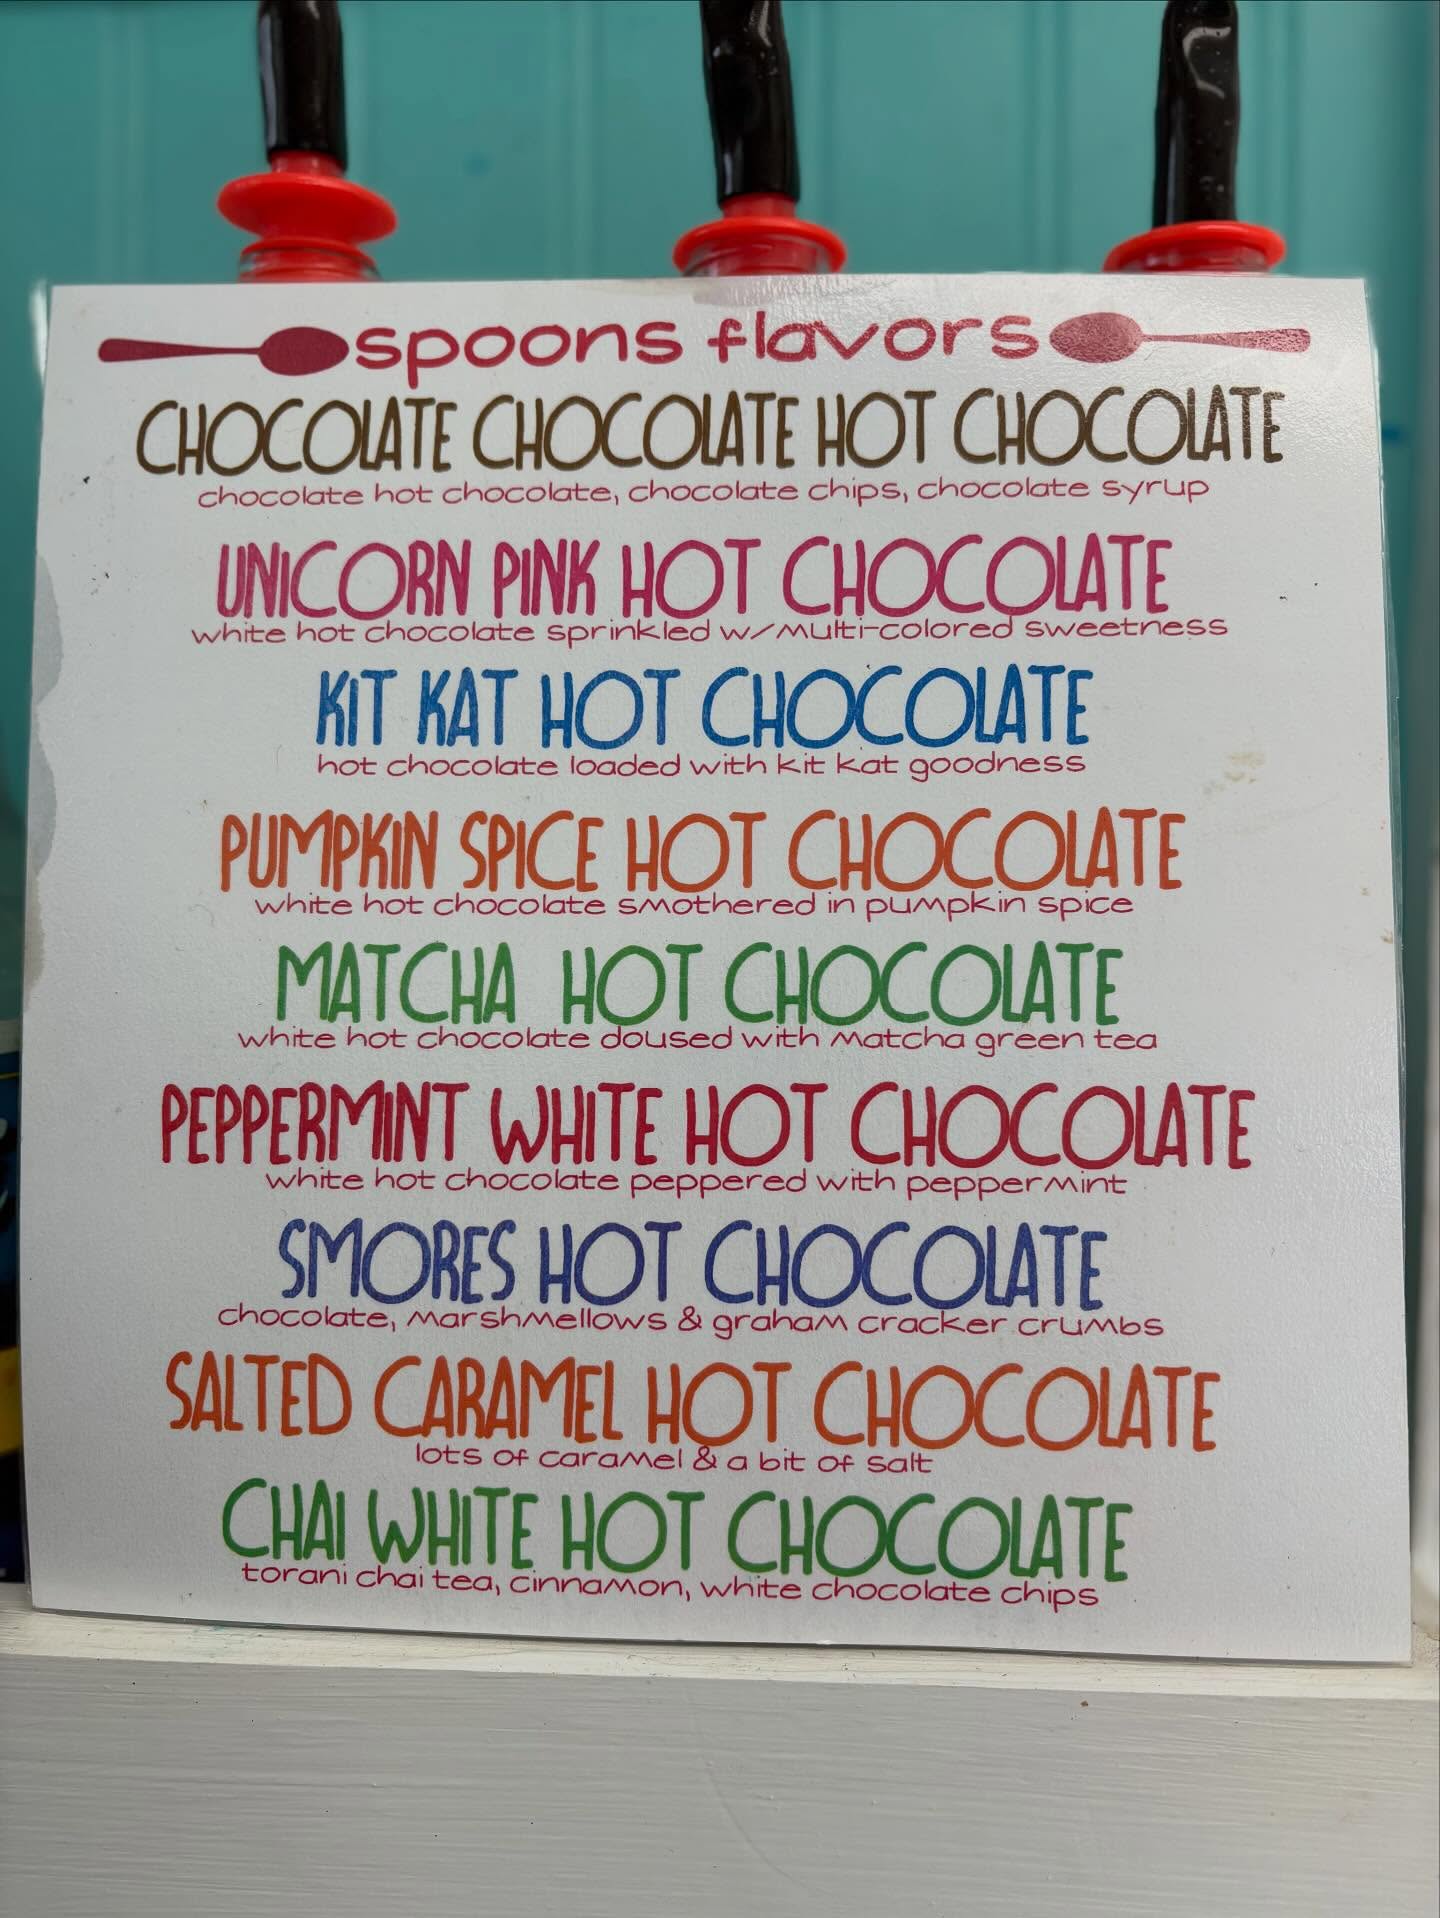 spoons flavors
CHOCOLATE CHOCOLATE HOT CHOCOLATE
chocolate hot chocolate, chocolate chips, chocolate syrup
UNICORN PINK HOT CHOCOLATE
white hot chocolate sprinkled w/multi-colored sweetness
KIT KAT HOT CHOCOLATE
hot chocolate loaded with kit kat goodness
PUMPKIN SPICE HOT CHOCOLATE
white hot chocolate smothered in pumpkin spice
MATCHA HOT CHOCOLATE
white hot chocolate doused with matcha green tea
PEPPERMINT WHITE HOT CHOCOLATE
white hot chocolate peppered with peppermint
SMORES HOT CHOCOLATE
chocolate, marshmellows & graham cracker crumbs
SALTED CARAMEL HOT CHOCOLATE
lots of caramel & a bit of salt
CHAI WHITE HOT CHOCOLATE
torani chai tea, cinnamon, white chocolate chips